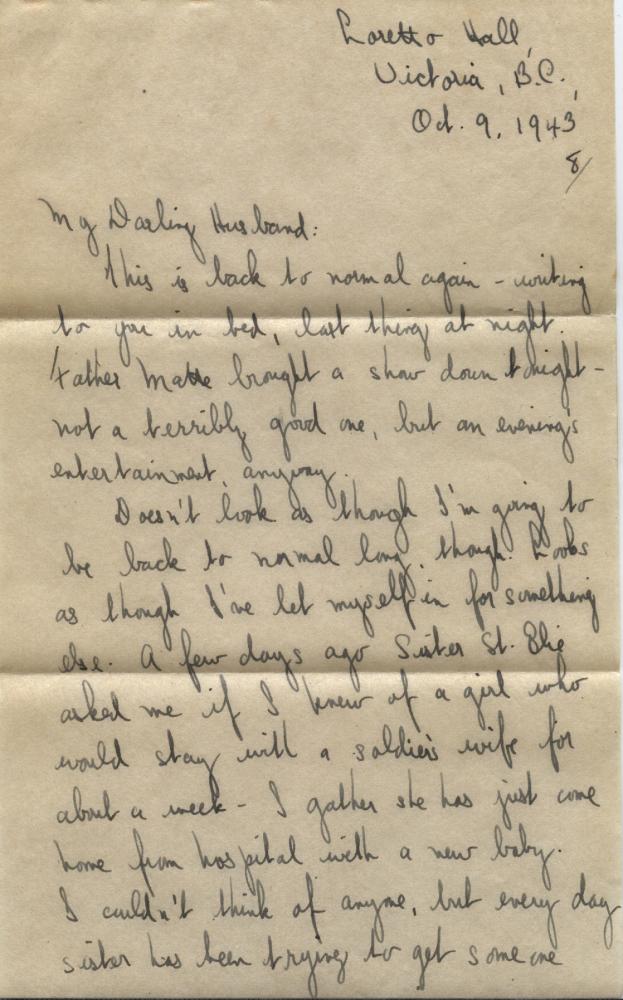 Loretto Hall,
Victoria, B.C.,
Oct. 9, 1943
8/
My Darling Husband:
This is back to normal again - writing
to you in bed, last thing at night.
Father brought a show down tonight -
not a terribly good one, but an evening's
entertainment, anyway.
Doesn't look as though I'm going to
be back to normal long, though. Looks
as though I've let myself in for something
else. A few days ago Sister St. Elie
asked me if I knew of a girl who
would stay with a soldier's wife for
about a week - I gather she has just come
home from hospital with a new baby.
I couldn't think of anyone, but every day
sister has been trying to get someone